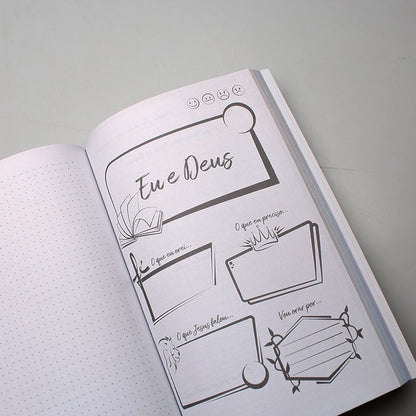 Eu e Deus
O que eu orei...
O que eu preciso...
O que Jesus falou...
Vou orar por...